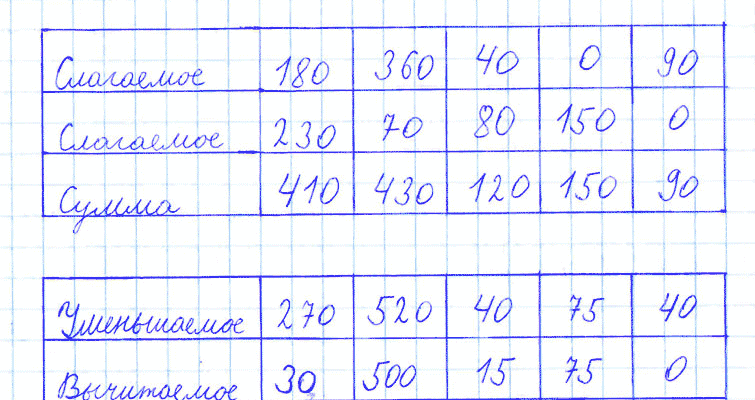 Слагаемое 180 360 40 0 90
Слагаемое 230 70 80 150 0
Сумма 410 430 120 150 90
Уменьшаемое 270 520 40 75 40
Вычитаемое 30 500 15 75 0